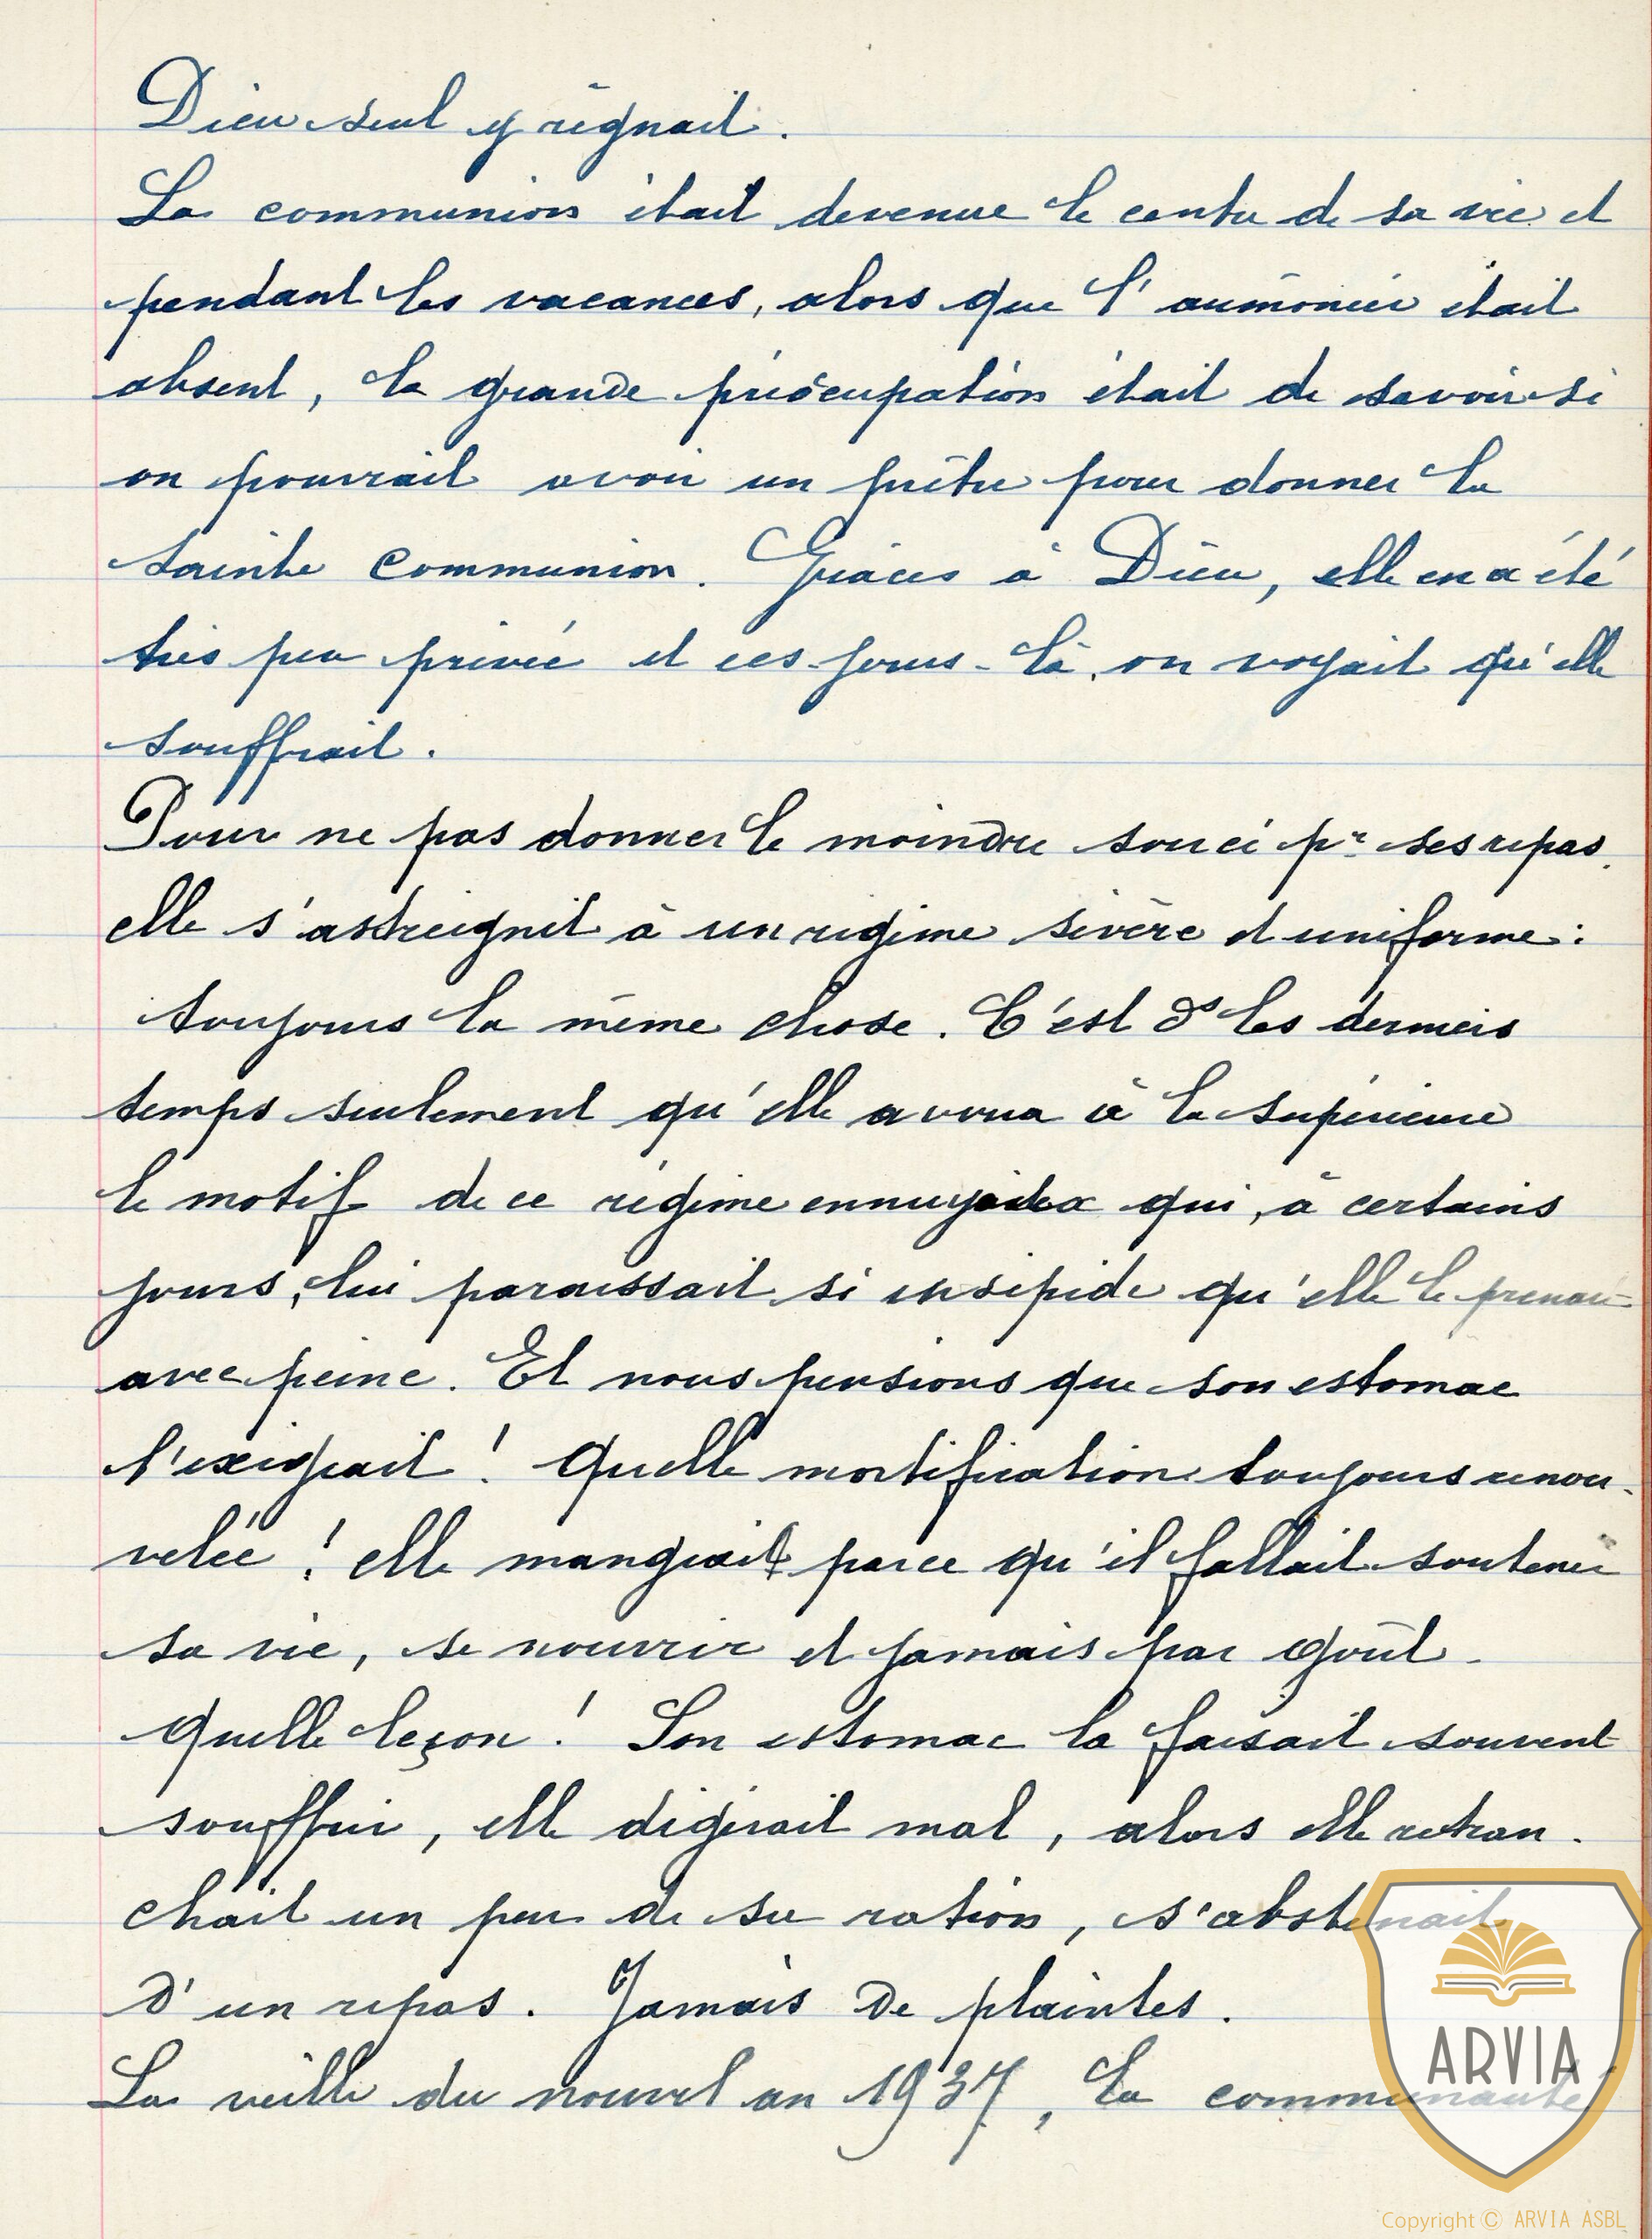 Dieu seul y règnait.
La communion était devenue le centre de sa vie et
pendant les vacances, alors que l'aumônier était
absent, la grande préocupation était de savoir si
on pourrait avoir un prêtre pour donner la
Sainte Communion. Grâces à Dieu, elle en a été
très peu privée et ces jours-là, on voyait qu'elle
souffrait.
Pour ne pas donner le moindre souci pr ses repas,
elle s'astreignit à un régime sévère et uniforme :
toujours la même chose. C'est ds les derniers
temps seulement qu'elle avoua à la supérieure
le motif de ce régime ennuyeux qui, à certains
jours, lui paraissait si insipide qu'elle le prenait
avec peine. Et nous pensions que son estomac
l'exigeait ! Quelle mortification toujours renou-
velée ! elle mangeait parce qu'il fallait soutenir
sa vie, se nourrir et jamais par goût.
Quelle leçon ! Son estomac la faisait souvent
souffrir, elle digérait mal, alors elle retran-
chait un peu de sa ration, s'abstenait
d'un repas. Jamais de plaintes.
La veille du nouvel an 1937, la communauté
ARVIA
Copyright © ARVIA ASBL